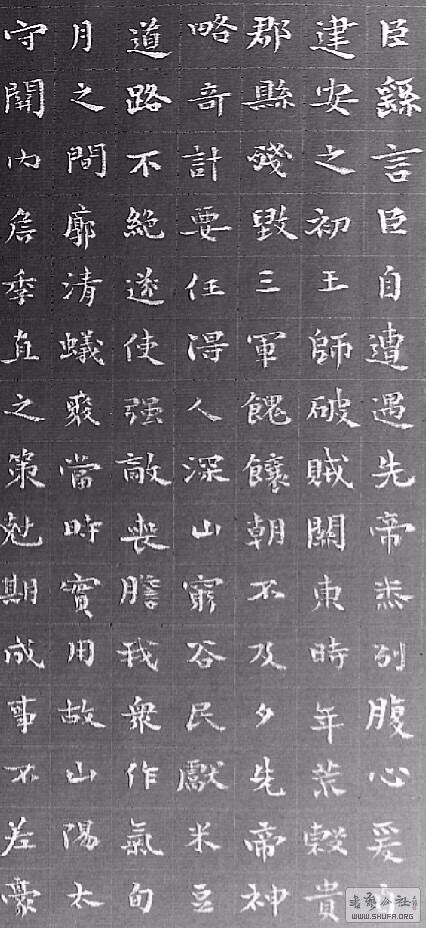 臣繇言臣自遭遇先帝忝列腹心爰自
建安之初王師破賊關東時年荒穀貴
郡縣殘毀三軍餽饟朝不及夕先帝神
略奇計委任得人深山窮谷民獻米豆
道路不絕遂使强敵喪膽我衆作氣旬
月之間廓清蟻聚當時實用故山陽太
守關內侯季直之策剋期成事不差豪
WWW.SHUFA.ORG